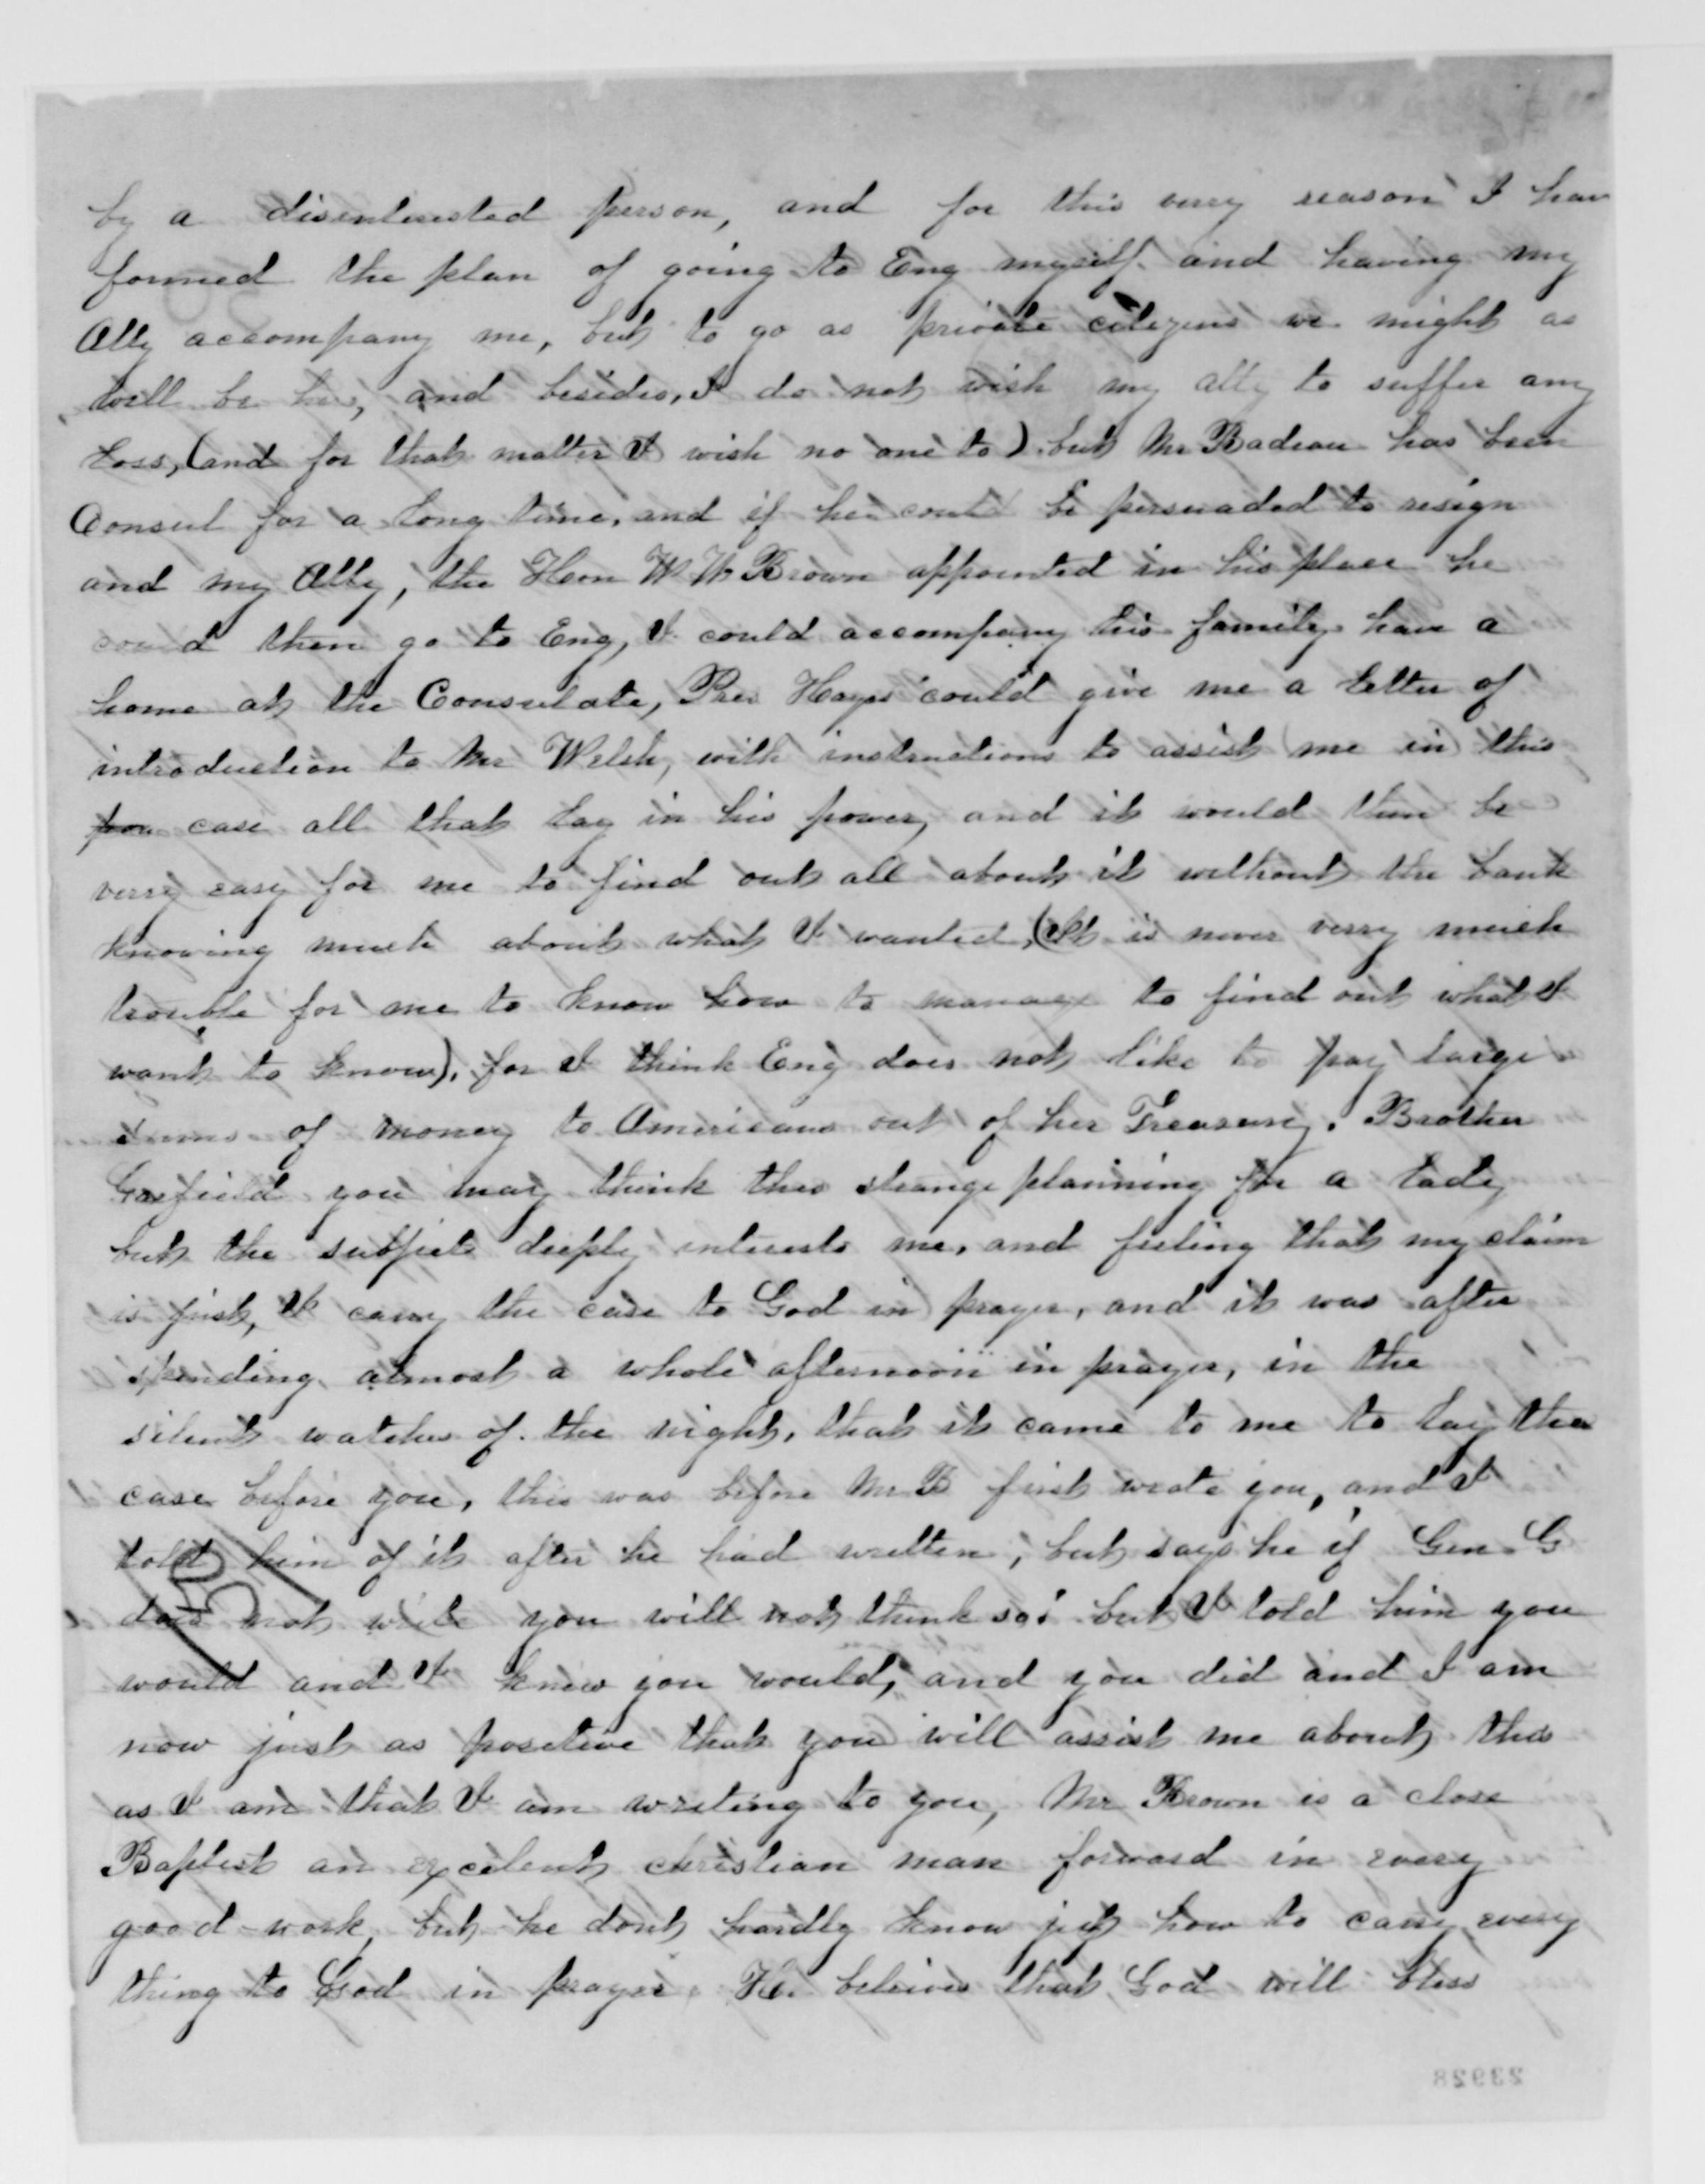 by a disinterested person, and for this verry reason I hav
formed the plan of going to Eng myself and having my
Atty accompany me, but to go as private citizens we might as
well be here, and besides, I do not wish my atty to suffer any
loss, (and for that matter I wish no one to) but Mr Badeau has been
Consul for a long time, and if he could be persuaded to resign
and my Atty, the Hon W W Brown appointed in his place he
could then go to Eng, I could accompany his family have a
home at the Consulate, Pres Hayes could give me a letter of
introduction to Mr Welsh, with instructions to assist me in this
case all that lay in his power, and it would then be
verry easy for me to find out all about it without the bank
knowing much about what I wanted, (It is never verry much
trouble for me to know how to manage to find out what I
want to know), for I think Eng does not like to pay large
sums of money to Americans out of her Treasury. Brother
Garfield you may think this strange planning for a lady
but the subject deeply interests me, and feeling that my claim
is just, I cary the case to God in prayer, and it was after
spending almost a whole afternoon in prayer, in the
silent watches of the night, that it came to me to lay the
case before you, this was before Mr B first wrote you, and I
told him of it after he had written, but says he if Gen G
does not write you will not think so; but I told him you
would and I knew you would, and you did and I am
now just as positive that you will assist me about this
as I am that I am writing to you, Mr Brown is a close
Baptist an excelent christian man forward in every
good work, but he dont hardly know just how to cary every
thing to God in prayer. He beleives that God will bless
37
23928